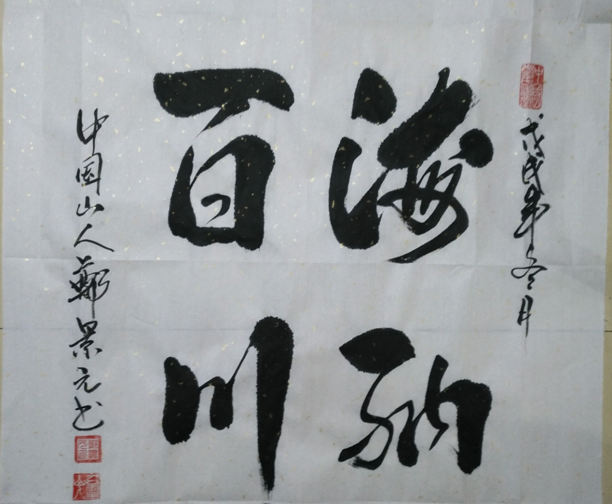 戊戌年冬月
海纳
百川
中国山人鄭景元书